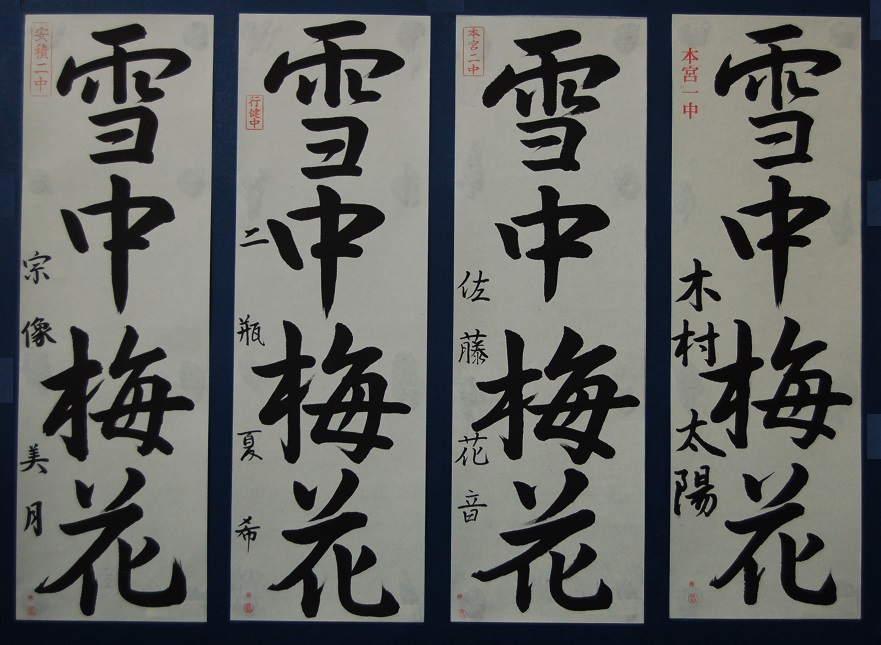 本宮一中
雪中梅花
木村太陽
本宮二中
雪中梅花
佐藤花音
行健中
雪中梅花
二瓶夏希
安積二中
雪中梅花
宗像美月